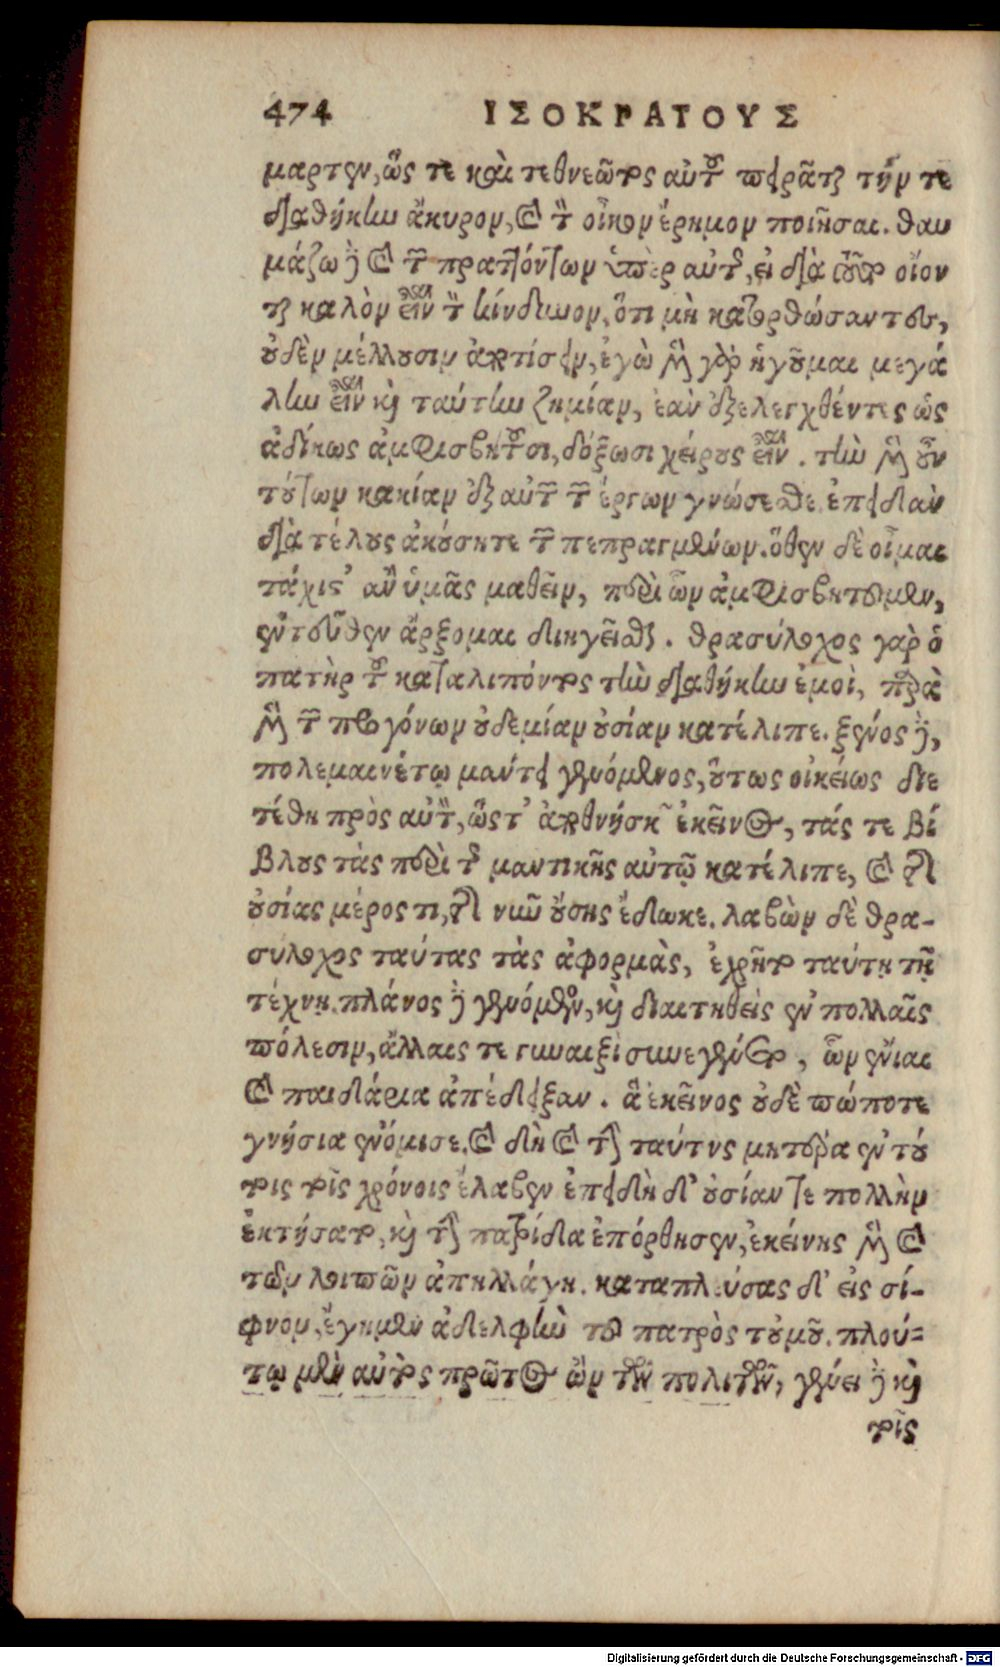 474 ΙΣΟΚΡΑΤΟΥΣ
μαρτεν, ὥς τε καὶ τεθνεῶτος αὐτοῦ πειρᾶται τήν τε
διαθήκην ἄκυρον, καὶ τὸν οἶκον ἔρημον ποιῆσαι. θαυ
μάζω δὲ καὶ τῶν πραττόντων ὑπὲρ αὐτοῦ, εἰ διὰ τοῦτο οἴον
ται καλὸν εἶναι τὸν κίνδυνον, ὅτι μὴ κατορθώσαντες,
οὐδὲν μέλλουσιν ἀποτίσειν, ἐγὼ μὲν γὰρ ἡγοῦμαι μεγά
λην εἶναι καὶ ταύτην ζημίαν, ἐὰν ἐξελεγχθέντες ὡς
ἀδίκως ἀμφισβητοῦσι, δόξωσι χείρους εἶναι. τὴν μὲν οὖν
τούτων κακίαν ἐξ αὐτῶν τῶν ἔργων γνώσεσθε, ἐπειδὰν
διὰ τέλους ἀκούσητε τῶν πεπραγμένων. ὅθεν δὲ οἶμαι
τάχιστ' ἂν ὑμᾶς μαθεῖν, περὶ ὧν ἀμφισβητοῦμεν,
ἐντεῦθεν ἄρξομαι διηγεῖσθαι. θρασύλοχος γὰρ ὁ
πατὴρ τοῦ καταλιπόντος τὴν διαθήκην ἐμοὶ, παρὰ
μὲν τῶν προγόνων οὐδεμίαν οὐσίαν κατέλιπε. ξένος δὲ,
πολεμαινέτῳ μάντει γενόμενος, οὕτως οἰκείως διε
τέθη πρὸς αὐτὸν, ὥςτ' ἀποθνήσκων ἐκεῖνος, τάς τε βί
βλους τὰς περὶ τῆς μαντικῆς αὐτῷ κατέλιπε, καὶ τῆς
οὐσίας μέρος τι, τῆς νῦν οὔσης ἔδωκε. λαβὼν δὲ θρα-
σύλοχος ταύτας τὰς ἀφορμὰς, ἐχρῆτο ταύτῃ τῇ
τέχνῃ. πλάνος δὲ γενόμενος, καὶ διαιτηθεὶς ἐν πολλαῖς
πόλεσιν, ἄλλαις τε γυναιξὶ συνεγένετο, ὧν ἔνιαι
καὶ παιδάρια ἀπέδειξαν. ἃ ἐκεῖνος οὐδὲ πώποτε
γνήσια ἐνόμισε. καὶ δὴ καὶ τὴν ταύτης μητέρα ἐν τού
τοις τοῖς χρόνοις ἔλαβεν ἐπειδὴ δ' οὐσίαν τε πολλὴν
ἐκτήσατο, καὶ τὴν πατρίδα ἐπόρθησεν, ἐκείνης μὲν καὶ
τῶν λοιπῶν ἀπηλλάγη. καταπλεύσας δ' εἰς σί-
φνον, ἔγημεν ἀδελφὴν τοῦ πατρὸς τοὐμοῦ. πλού-
τῳ μὲν αὐτὸς πρῶτος ὢν τῶν πολιτῶν, γένει δὲ καὶ
τοῖς
Digitalisierung gefördert durch die Deutsche Forschungsgemeinschaft - DFG